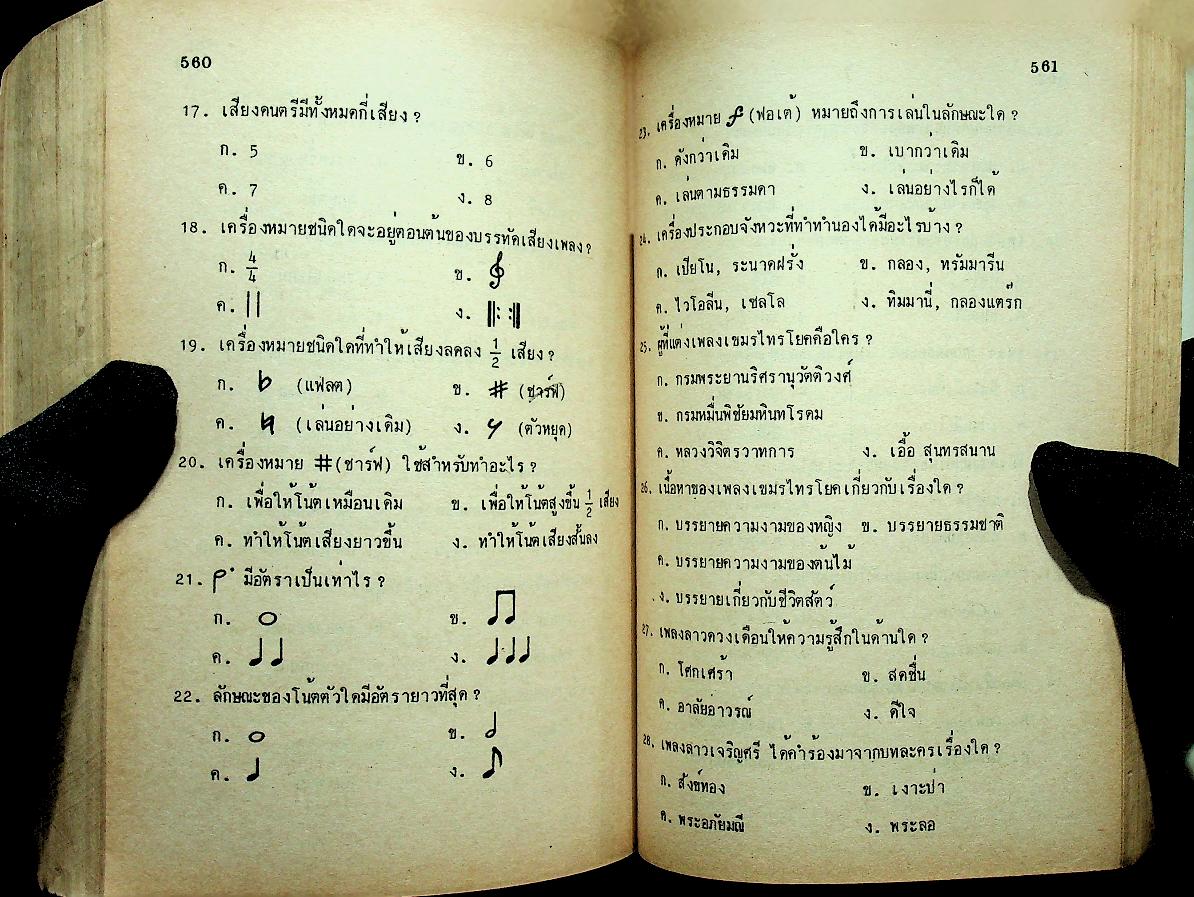 560
17. เสียงดนตรีมีทั้งหมดกี่เสียง ?
ก. 5 ข. 6
ค. 7 ง. 8
18. เครื่องหมายชนิดใดจะอยู่ตอนต้นของบรรทัดเสียงเพลง ?
ก. 4/4 ข. 𝄞
ค. || ง. 𝄆 𝄇
19. เครื่องหมายชนิดใดที่ทำให้เสียงลดลง 1/2 เสียง ?
ก. ♭ (แฟลต) ข. # (ชาร์ฟ)
ค. ♮ (เล่นอย่างเดิม) ง. 𝄾 (ตัวหยุด)
20. เครื่องหมาย #(ชาร์ฟ) ใช้สำหรับทำอะไร ?
ก. เพื่อให้โน้ตเหมือนเดิม ข. เพื่อให้โน้ตสูงขึ้น 1/2 เสียง
ค. ทำให้โน้ตเสียงยาวขึ้น ง. ทำให้โน้ตเสียงสั้นลง
21. มีอัตราเป็นเท่าไร ?
ก. 𝅝 ข. ♫
ค. ♩♩ ง. ♩♩♩
22. ลักษณะของโน้ตตัวใดมีอัตรายาวที่สุด ?
ก. 𝅝 ข. 𝅗𝅥
ค. ♩ ง. ♪
561
23. เครื่องหมาย f (ฟอเต้) หมายถึงการเล่นในลักษณะใด ?
ก. ดังกว่าเดิม ข. เบากว่าเดิม
ค. เล่นตามธรรมดา ง. เล่นอย่างไรก็ได้
24. เครื่องประกอบจังหวะที่ทำทำนองได้มีอะไรบ้าง ?
ก. เปียโน, ระนาดฝรั่ง ข. กลอง, ทรัมมารีน
ค. ไวโอลีน, เชลโล ง. ทิมมานี่, กลองแตร๊ก
25. ผู้ที่แต่งเพลงเขมรไทรโยคคือใคร ?
ก. กรมพระยานริศรานุวัดติวงศ์
ข. กรมหมื่นพิชัยมหินทโรดม
ค. หลวงวิจิตรวาทการ ง. เอื้อ สุนทรสนาน
26. เนื้อหาของเพลงเขมรไทรโยคเกี่ยวกับเรื่องใด ?
ก. บรรยายความงามของหญิง ข. บรรยายธรรมชาติ
ค. บรรยายความงามของต้นไม้
ง. บรรยายเกี่ยวกับชีวิตสัตว์
27. เพลงลาวดวงเดือนให้ความรู้สึกในด้านใด ?
ก. โศกเศร้า ข. สดชื่น
ค. อาลัยอาวรณ์ ง. ดีใจ
28. เพลงลาวเจริญศรี ได้คำร้องมาจากบทละครเรื่องใด ?
ก. สังข์ทอง ข. เงาะป่า
ค. พระอภัยมณี ง. พระลอ